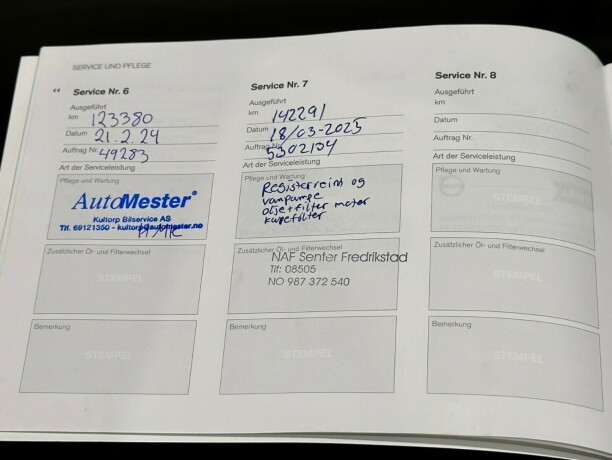 SERVICE UND PFLEGE
Service Nr. 6
Ausgeführt
km 123380
Datum 21.2.24
Auftrag Nr. 49283
Art der Serviceleistung
Pflege und Wartung
AutoMester
Kultorp Bilservice AS
Tlf. 69121350 - kultorp@automester.no
Zusätzlicher Öl- und Filterwechsel
STEMPEL
Bemerkung
STEMPEL
Service Nr. 7
Ausgeführt
km 142291
Datum 18/03-2025
Auftrag Nr. 5302104
Art der Serviceleistung
Pflege und Wartung
Registerreim og
vannpumpe
oljefilter motor
kupefilter
Zusätzlicher Öl- und Filterwechsel
NAF Senter Fredrikstad
Tlf: 08505
NO 987 372 540
Bemerkung
STEMPEL
Service Nr. 8
Ausgeführt
km
Datum
Auftrag Nr.
Art der Serviceleistung
Pflege und Wartung
STEMPEL
Zusätzlicher Öl- und Filterwechsel
STEMPEL
Bemerkung
STEMPEL